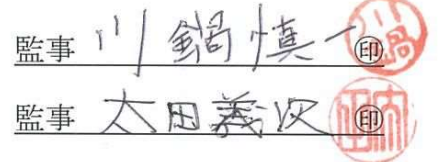 監事 川鍋慎一 ㊞ 川鍋
監事 太田義次 ㊞